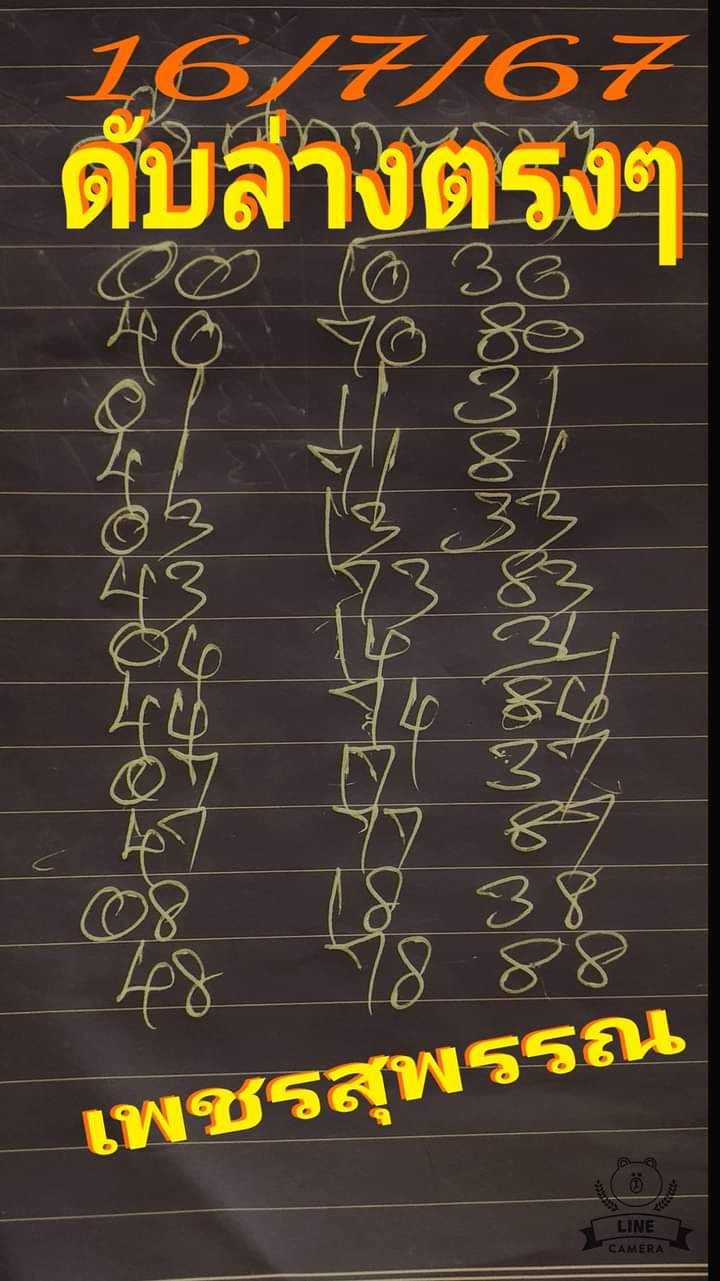 16/7/67
ดับล่างตรงๆ
00 10 30
40 70 80
01 11 31
41 71 81
03 13 33
43 73 83
04 14 34
44 74 84
07 17 37
47 77 87
08 18 38
48 78 88
เพชรสุพรรณ
LINE
CAMERA